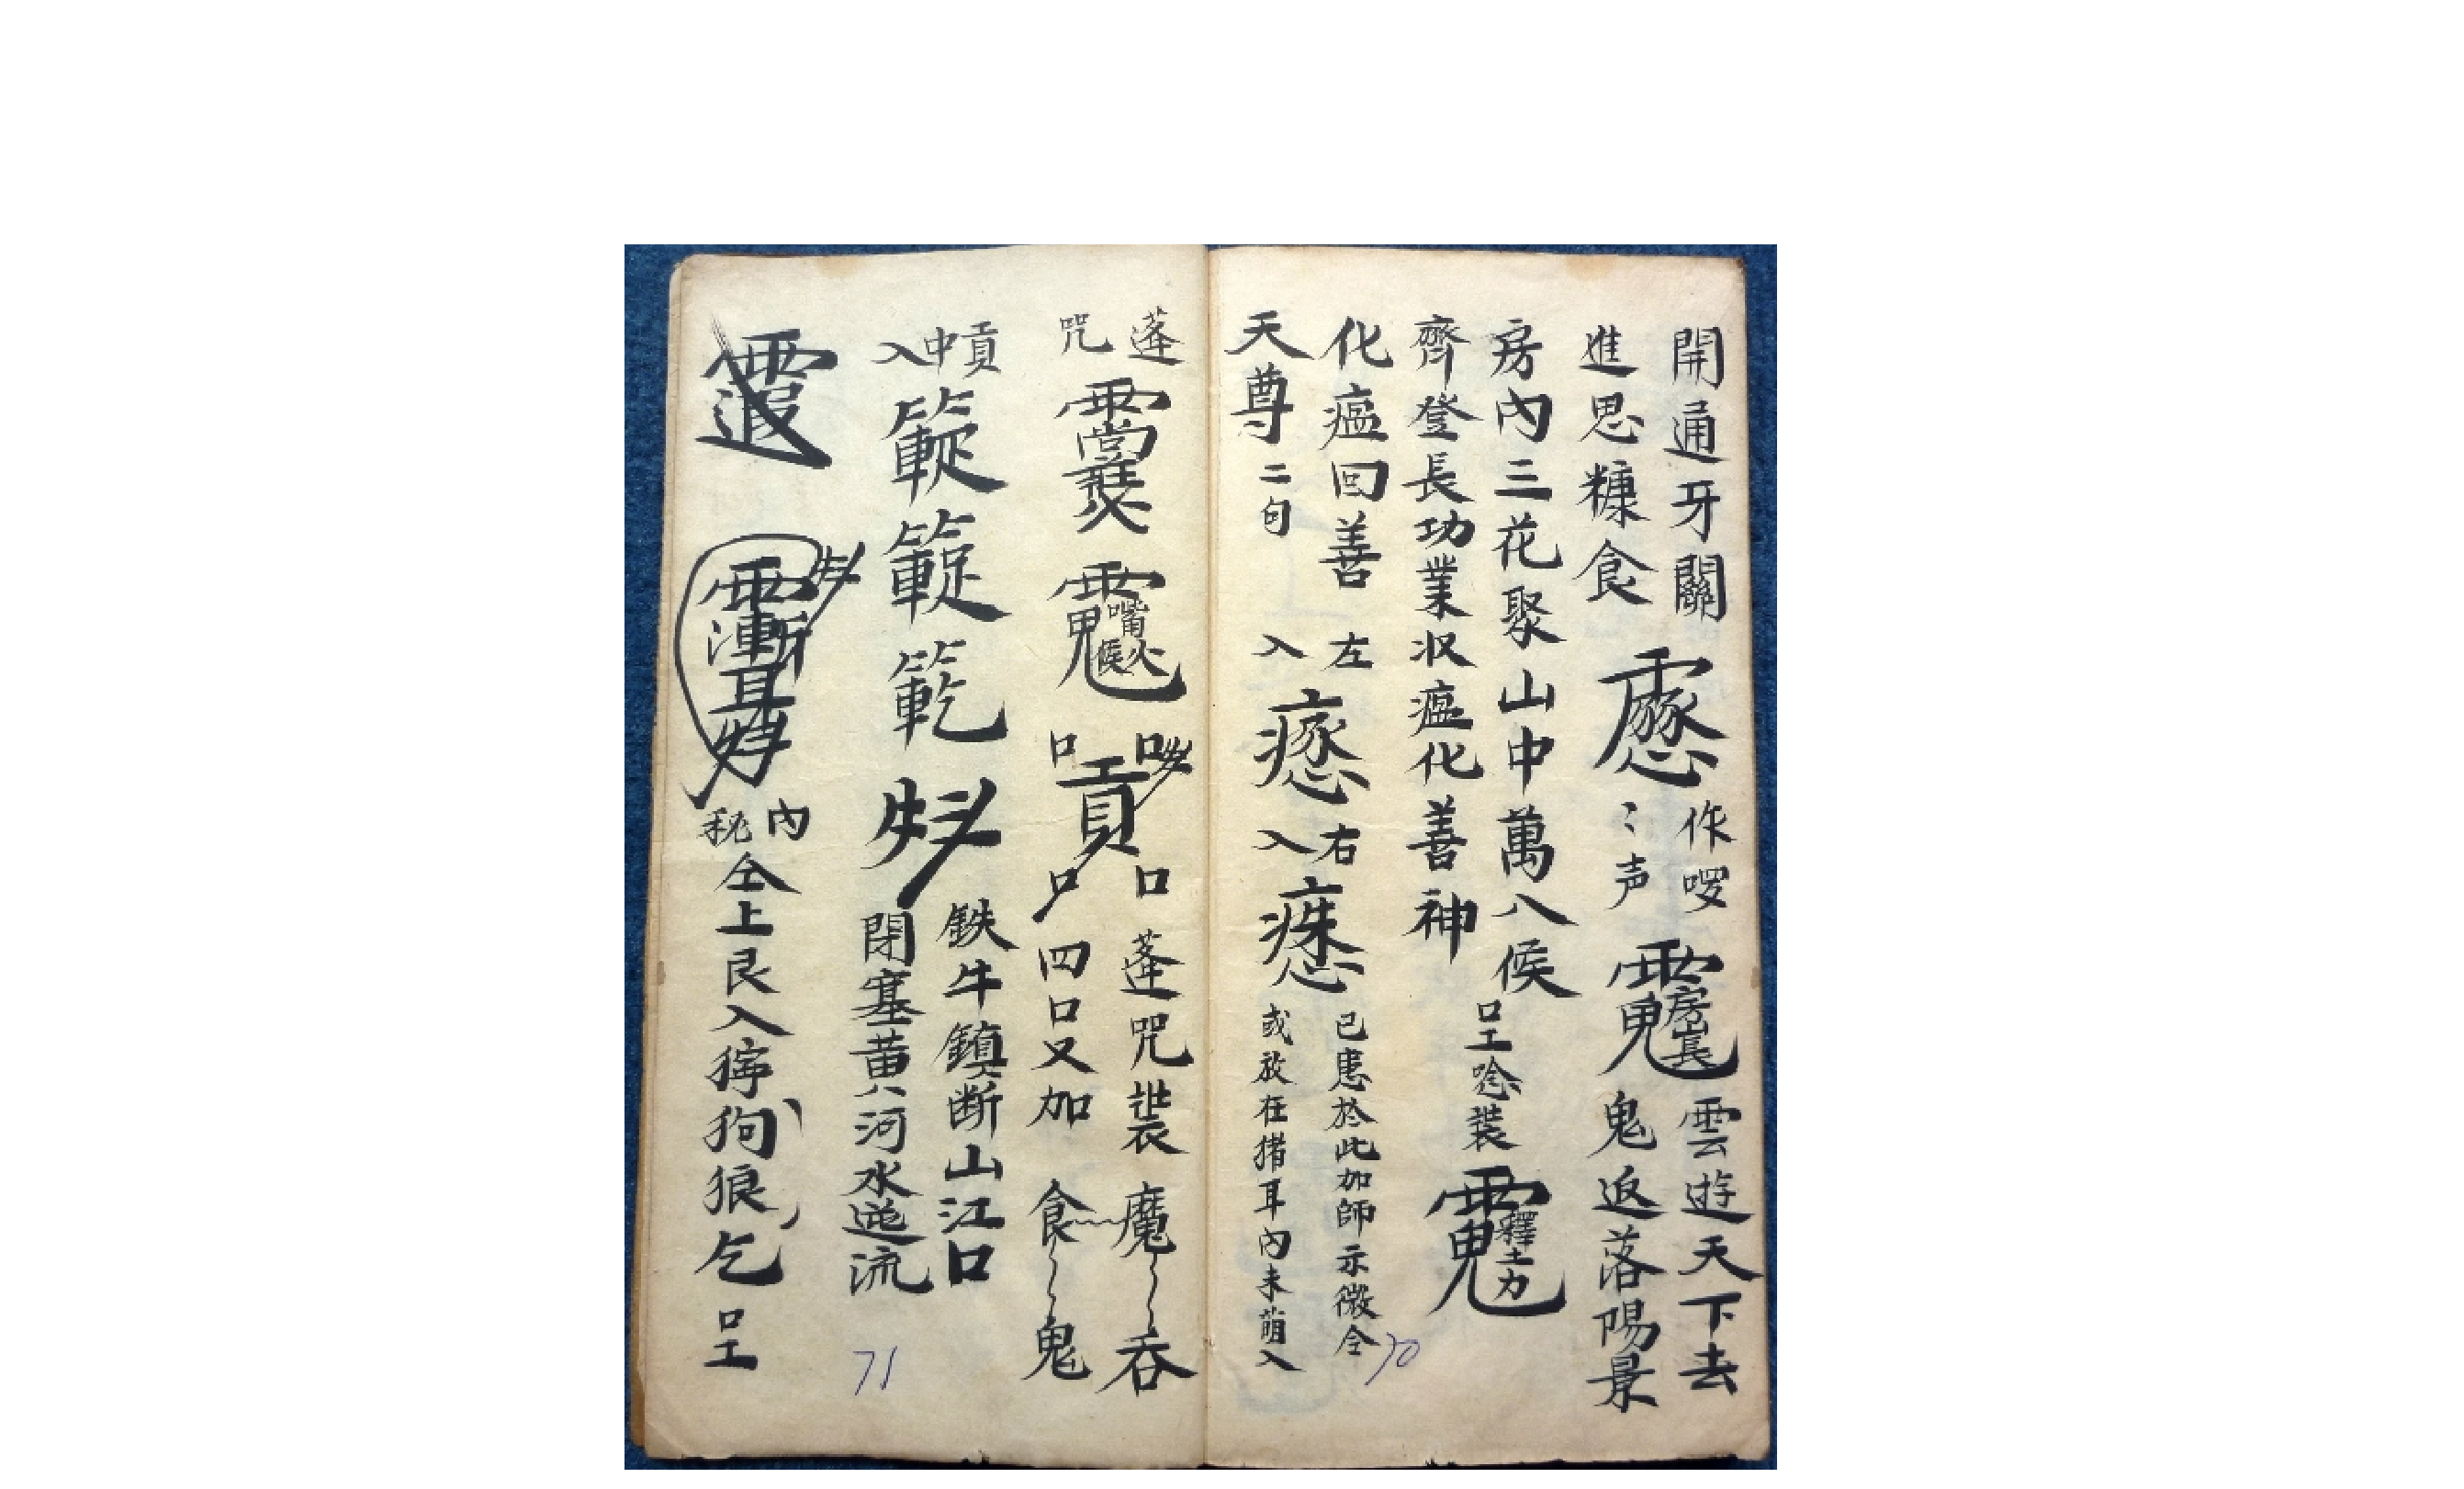 開通牙關
進思糠食
作啰
〻声
雲遊天下去
鬼返落陽景
房內三花聚山中萬八候
齊登長功業收瘟化善神
口工唸装
化瘟回善
天尊二句
左
入
右
入
已患於此加師示微令
或放在猪耳內未萌入
70
蓬
咒
口
口
貢
口
口
蓬咒装
四口又加
魔 吞
食 鬼
貢
中
入
鉄牛鎮断山江口
閉塞黄河水逆流
內
秘
仝上艮入狗狼乞
口工
71